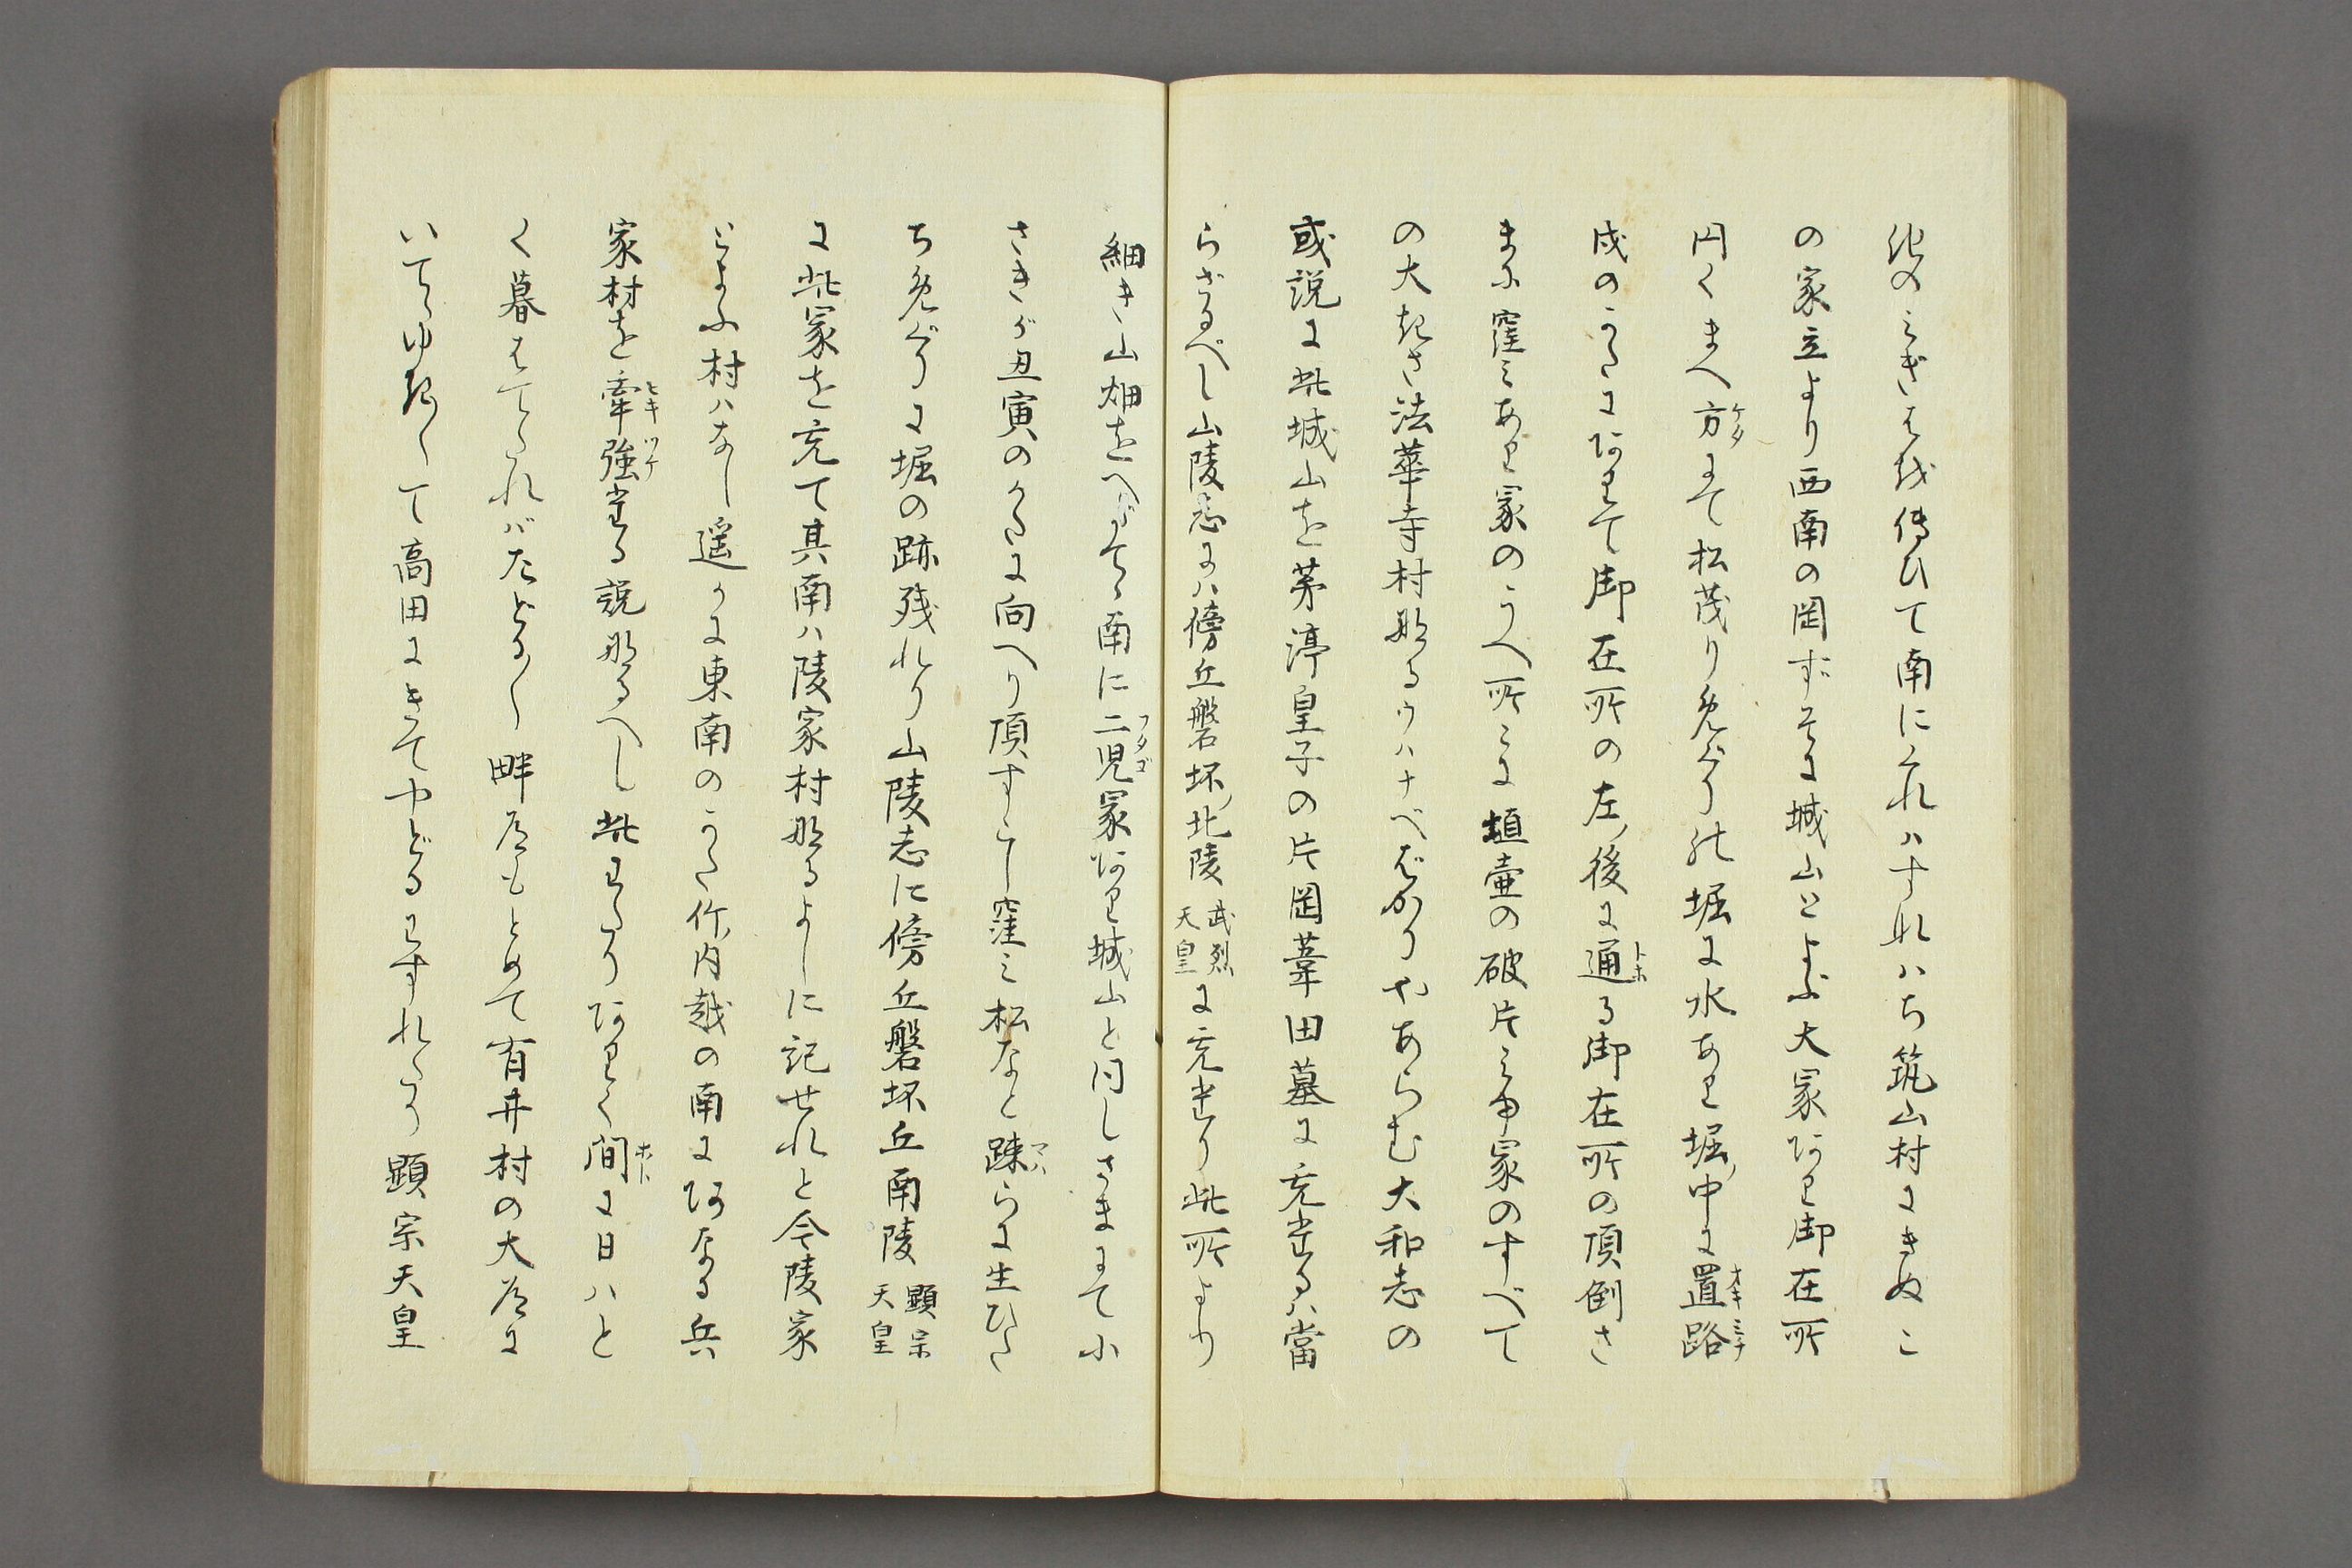 のみぎはを伝ひて南にくれハすなハち筑山村にきぬこ
の家立より西南の岡ずそに城山とよぶ大冢あり御在所
円くまへ方にて松茂りめぐりの堀に水あり堀ノ中に置路
戌のかたにありて御在所の左ノ後に通る御在所の頂倒さ
まに窪みあり冢のうへ所々に埴壷の破片みゆ冢のすべて
の大きさ法華寺村なるウハナベばかりやあらむ大和志の
或説に此城山を茅渟皇子の片岡葦田墓に充たるハ當
らざるべし山陵志にハ傍丘磐坏ノ北陵武烈天皇に充たり此所より
細き山畑をへだてゝ南に二児冢あり城山と同しさまにて小
さきが丑寅のかたに向へり頂すこし窪み松なと踈らに生ひた
ちめぐりに堀の跡残れり山陵志に傍丘磐坏丘南陵顕宗天皇
に此冢を充て其南ハ陵家村なるよしに記せれと今陵家
といふ村ハなし遥かに東南のかた竹ノ内越の南にあなる兵
家村を牽強たる説なるへし此わたりありく間に日ハと
く暮はてたれバたどる〳〵畔道もとめて有井村の大道に
いてゝゆき〳〵て高田にきてやどるわすれたり顕宗天皇